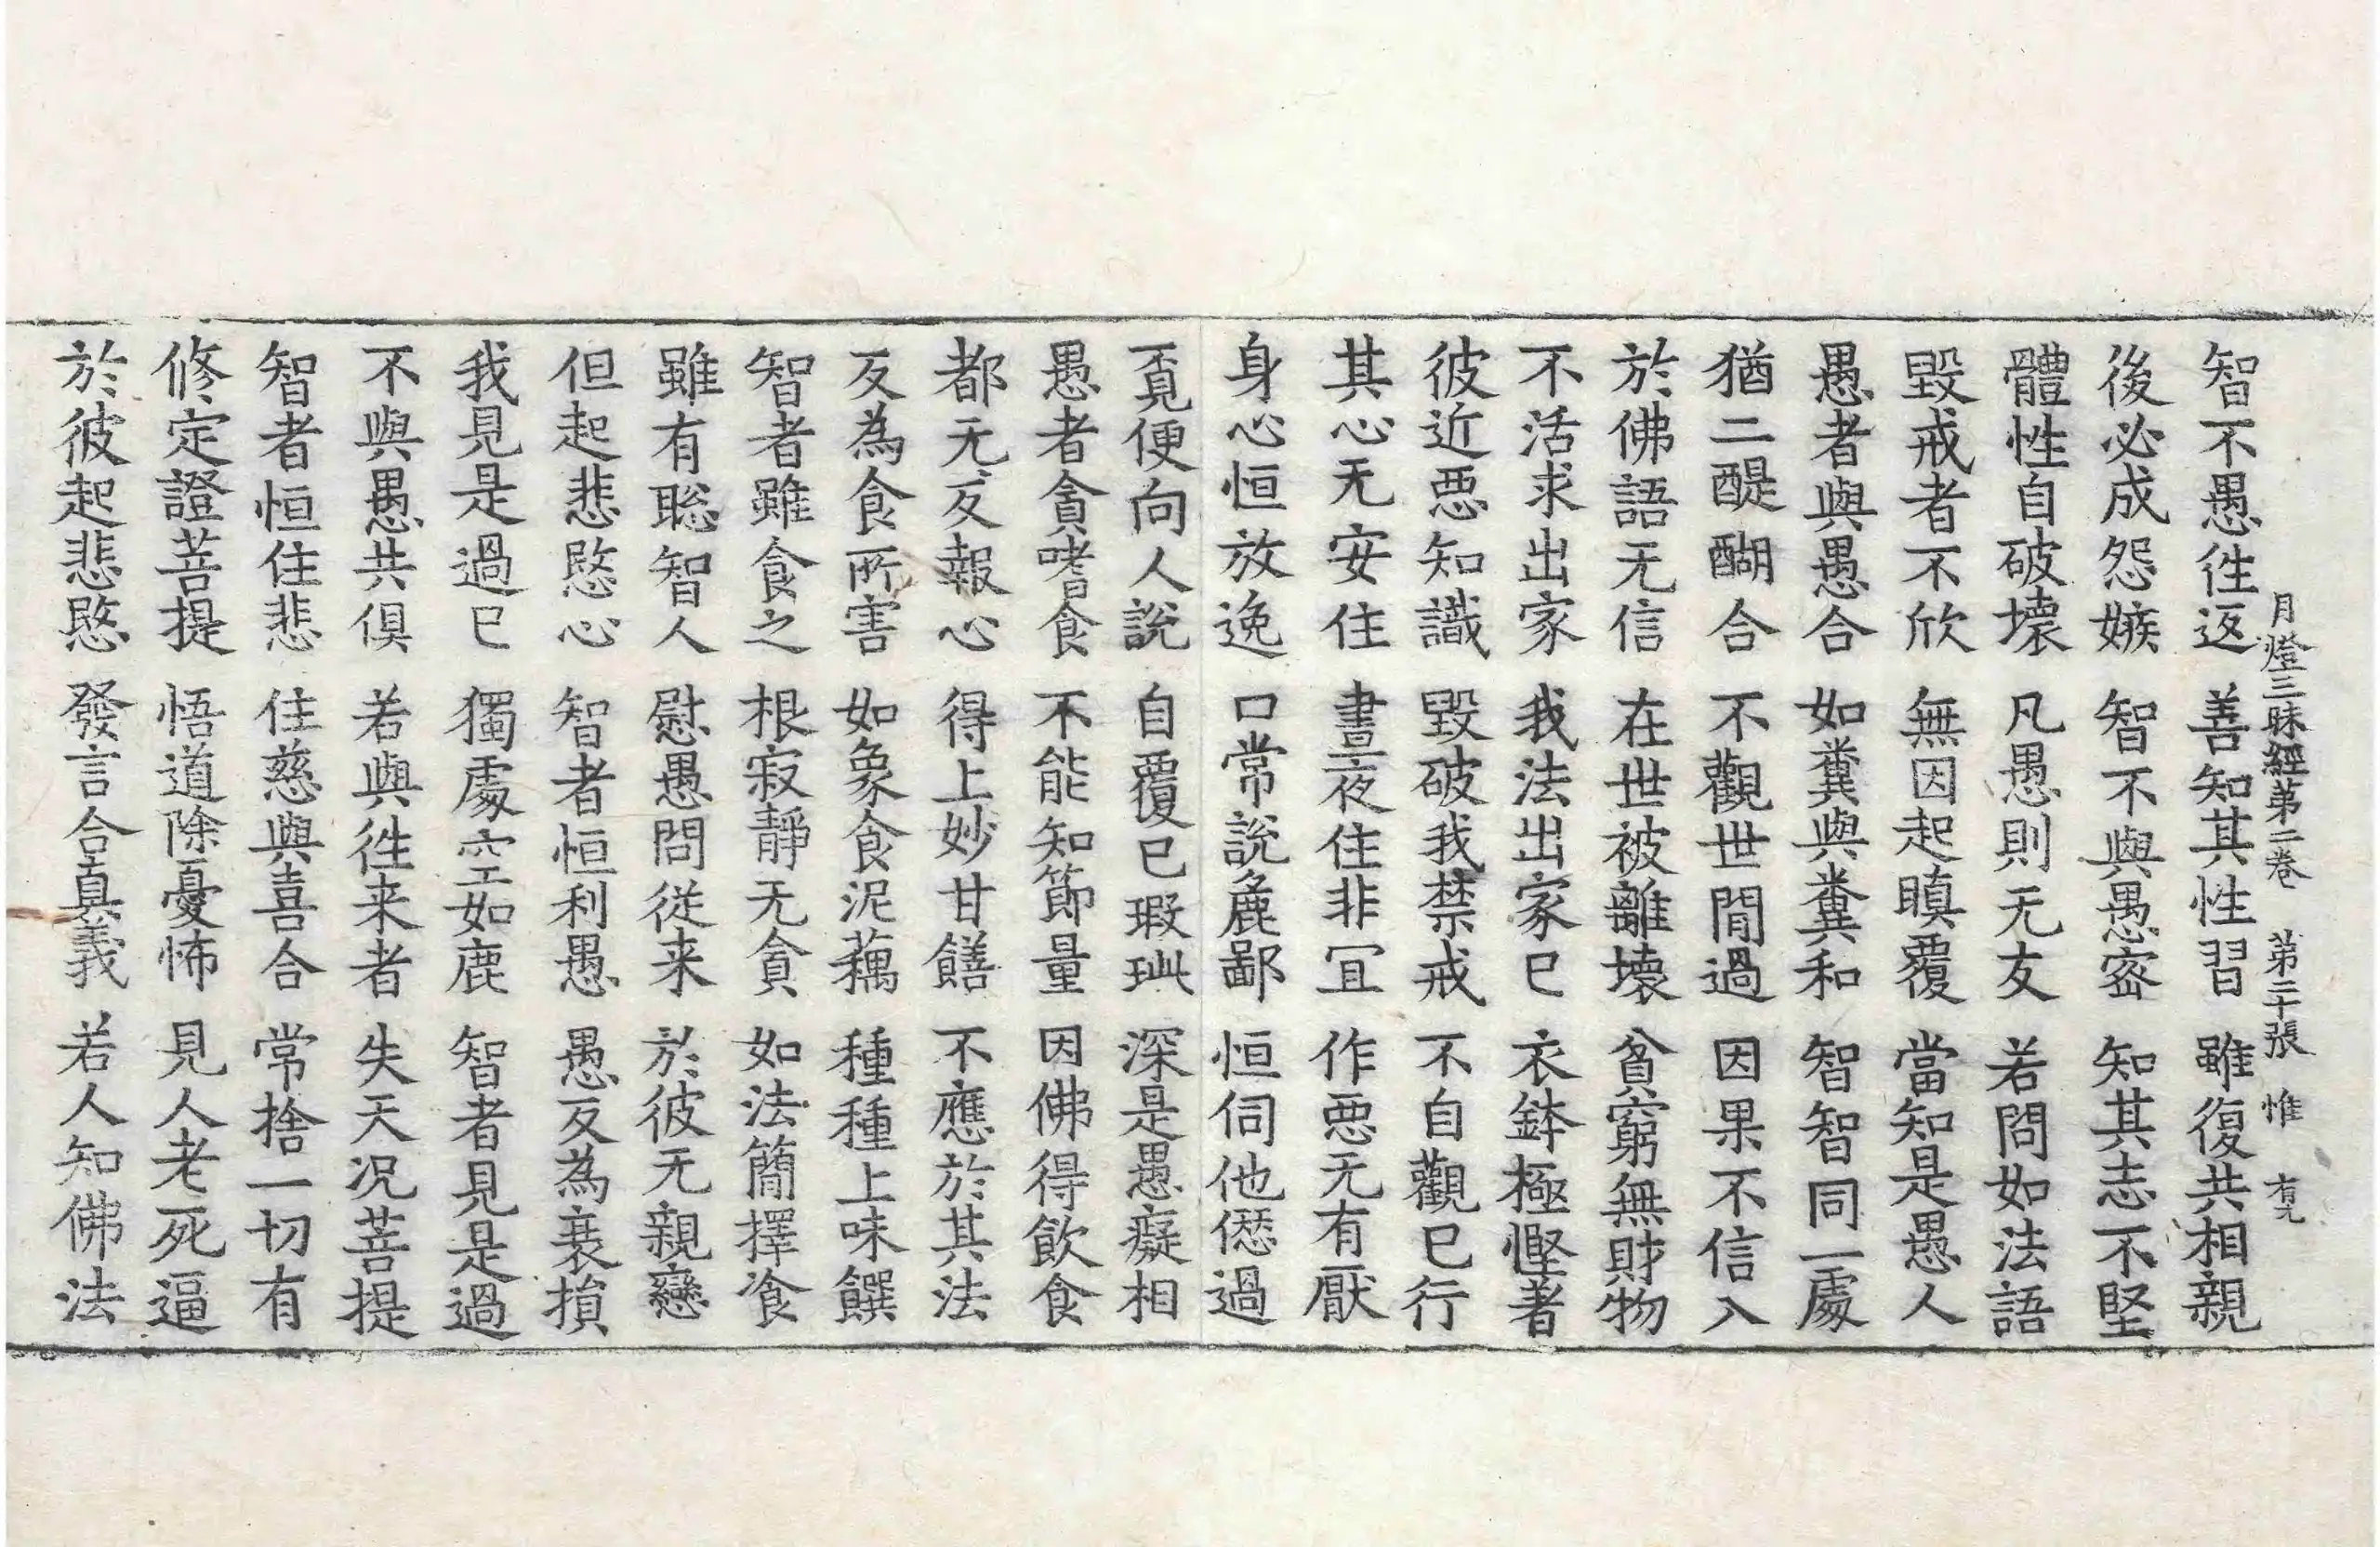 月燈三昧經第二卷　第二十張　惟　有元
智不愚徃返　善知其性習　雖復共相親
後必成怨嫉　智不與愚密　知其志不堅
體性自破壞　凡愚則无友　若問如法語
毀戒者不欣　無因起瞋覆　當知是愚人
愚者與愚合　如糞與糞和　智智同一處
猶二醍醐合　不觀世閒過　因果不信入
於佛語无信　在世被離壞　貧窮無財物
不活求出家　我法出家已　衣鉢極慳著
彼近惡知識　毀破我禁戒　不自觀已行
其心无安住　晝夜住非冝　作惡无有厭
身心恒放逸　口常說麁鄙　恒伺他愆過
覓便向人說　自覆已瑕玼　深是愚癡相
愚者貪嗜食　不能知節量　因佛得飲食
都无反報心　得上妙甘饍　不應於其法
反為食所害　如象食泥藕　種種上味饌
智者雖食之　根寂靜无貪　如法簡擇飡
雖有聡智人　慰愚問從来　於彼无親戀
但起悲愍心　智者恒利愚　愚反為衰損
我見是過已　獨處空如鹿　智者見是過
不與愚共俱　若與徃来者　失天况菩提
智者恒住悲　住慈與喜合　常捨一切有
修定證菩提　悟道除憂怖　見人老死逼
於彼起悲愍　發言合真義　若人知佛法